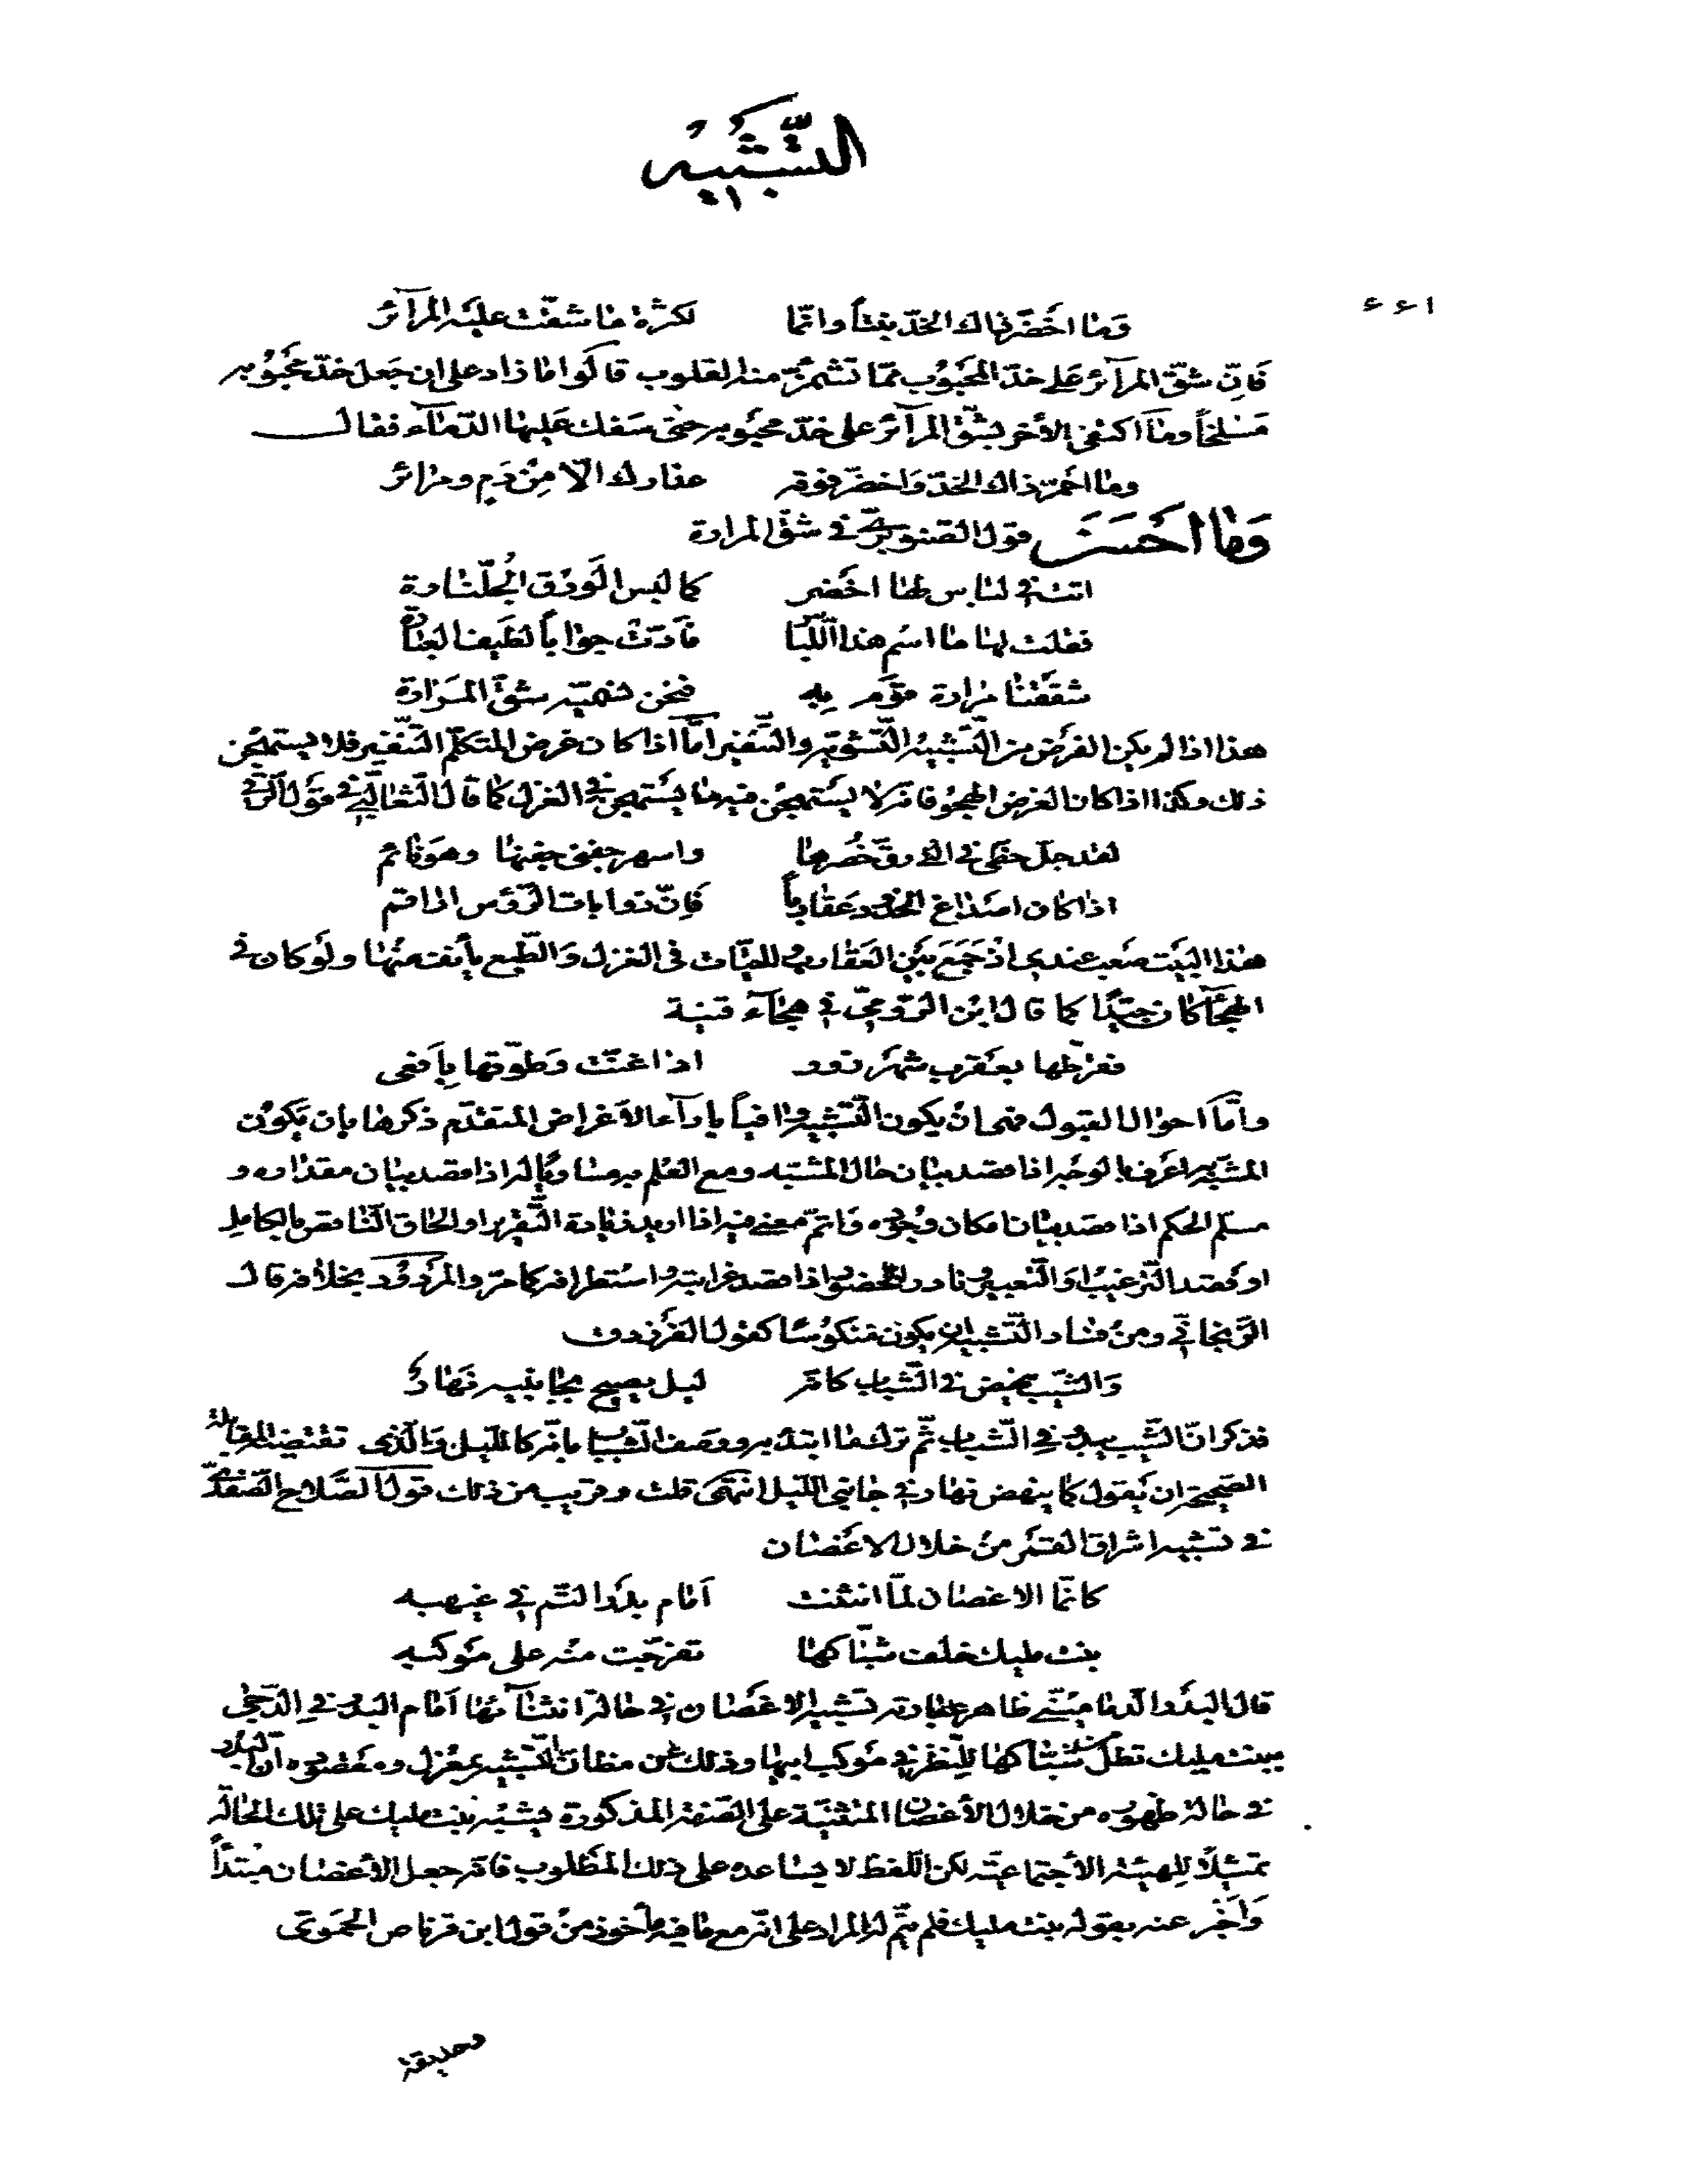 التشبيه
وما اخضر ذاك الخد نبتا وانما لكثرة ما شقت عليه المرآئر
فان شق المرآئر على خد المحبوب مما تشمئز منه القلوب قالوا ما زاد على ان جعل خد محبوبه
مسلخا وما اكتفى الأخر بشق المرآئر على خد محبوبه حتى سفك عليها الدماء فقال
وما احمر ذاك الخد واخضر فوقه عذارك الا من دم ومرائر
وما احسن قول الصنوبري في شق المرارة
اتت في لباس لها اخضر كما لبس الورق الجلنارة
فقلت لها ما اسم هذا اللباس فأدت جوابا لطيف العبارة
شققنا مرارة قوم به فنحن نسميه شق المرارة
هذا اذا لم يكن الغرض من التشبيه التشويه والتنفير أما اذا كان غرض المتكلم التنفير فلا يستهجن
ذلك وهكذا اذا كان الغرض الهجو فانه لا يستهجن فيه ما يستهجن في الغزل كما قال الثعالبي في قول
لقد جل حقي في الأرق خصرها واسهر جفني جفنها وهو نائم
اذا كان اصداغ الخدود عقاربا فان ذوابات الرؤس اراقم
هذا البيت صعب عندي اذ جمع بين العقارب والحيات في الغزل والطبع يأنف منها ولو كان في
الهجآء كان جيدا كما قال ابن الرومي في هجآء قينة
فقرطها بعقرب شهر زور اذا غنت وطوقها بأفعى
وأما احوال القبول فهى ان يكون التشبيه وافيا بادآء الأغراض المتقدم ذكرها بان يكون
المشبه به اعرف بالوجه اذا قصد بيان حال المشبه ومع العلم به مساويا له اذا قصد بيان مقداره و
مسلم الحكم اذا قصد بيان امكان وجوده واتم معنى فيه اذا اريد زيادة التقرير او الحاق الناقص بالكامل
او قصد الترغيب او التعيير ونادر الحضور اذا قصد غرابته واستطرافه كما مر والمردود بخلافه قال
الزنجاني ومن فساد التشبيه ان يكون منكوسا كقول الفرزدق
والشيب ينهض في الشباب كانه ليل يصيح بجانبيه نهار
فذكر ان الشيب يبدو في الشباب ثم ترك ما ابتدء به ووصف الشباب بانه كالليل والذي تقتضيه المقابلة
الصحيحة ان يقول كما ينهض نهار في جانبي الليل انتهى قلت وقريب من ذلك قول الصلاح الصفدي
في تشبيه اشراق القمر من خلال الاغصان
كانما الاغصان لما انثنت أمام بدر التم في غيهبه
بنت مليك خلف شباكها تفرجت منه على موكبه
قال البدر الدماميني ظاهر عبارته تشبيه الاغصان في حالة انثنآئها أمام البدر في الدجى
ببنت مليك تطل من شباكها للنظر في موكب ابيها وذلك عن مظان التشبيه بمعزل ومقصوده ان البدر
في حالة ظهوره من خلال الأغصان المنثنية على الصفة المذكورة يشبه بنت مليك على تلك الحالة
تمثيلا للهيئة الأجتماعية لكن اللفظ لا يساعده على ذلك المطلوب فانه جعل الأغصان مبتدأ
واخبر عنه بقوله بنت مليك فلم يتم له المراد على انه مع ما فيه مأخوذ من قول ابن قرناص الحموي
وحديقة